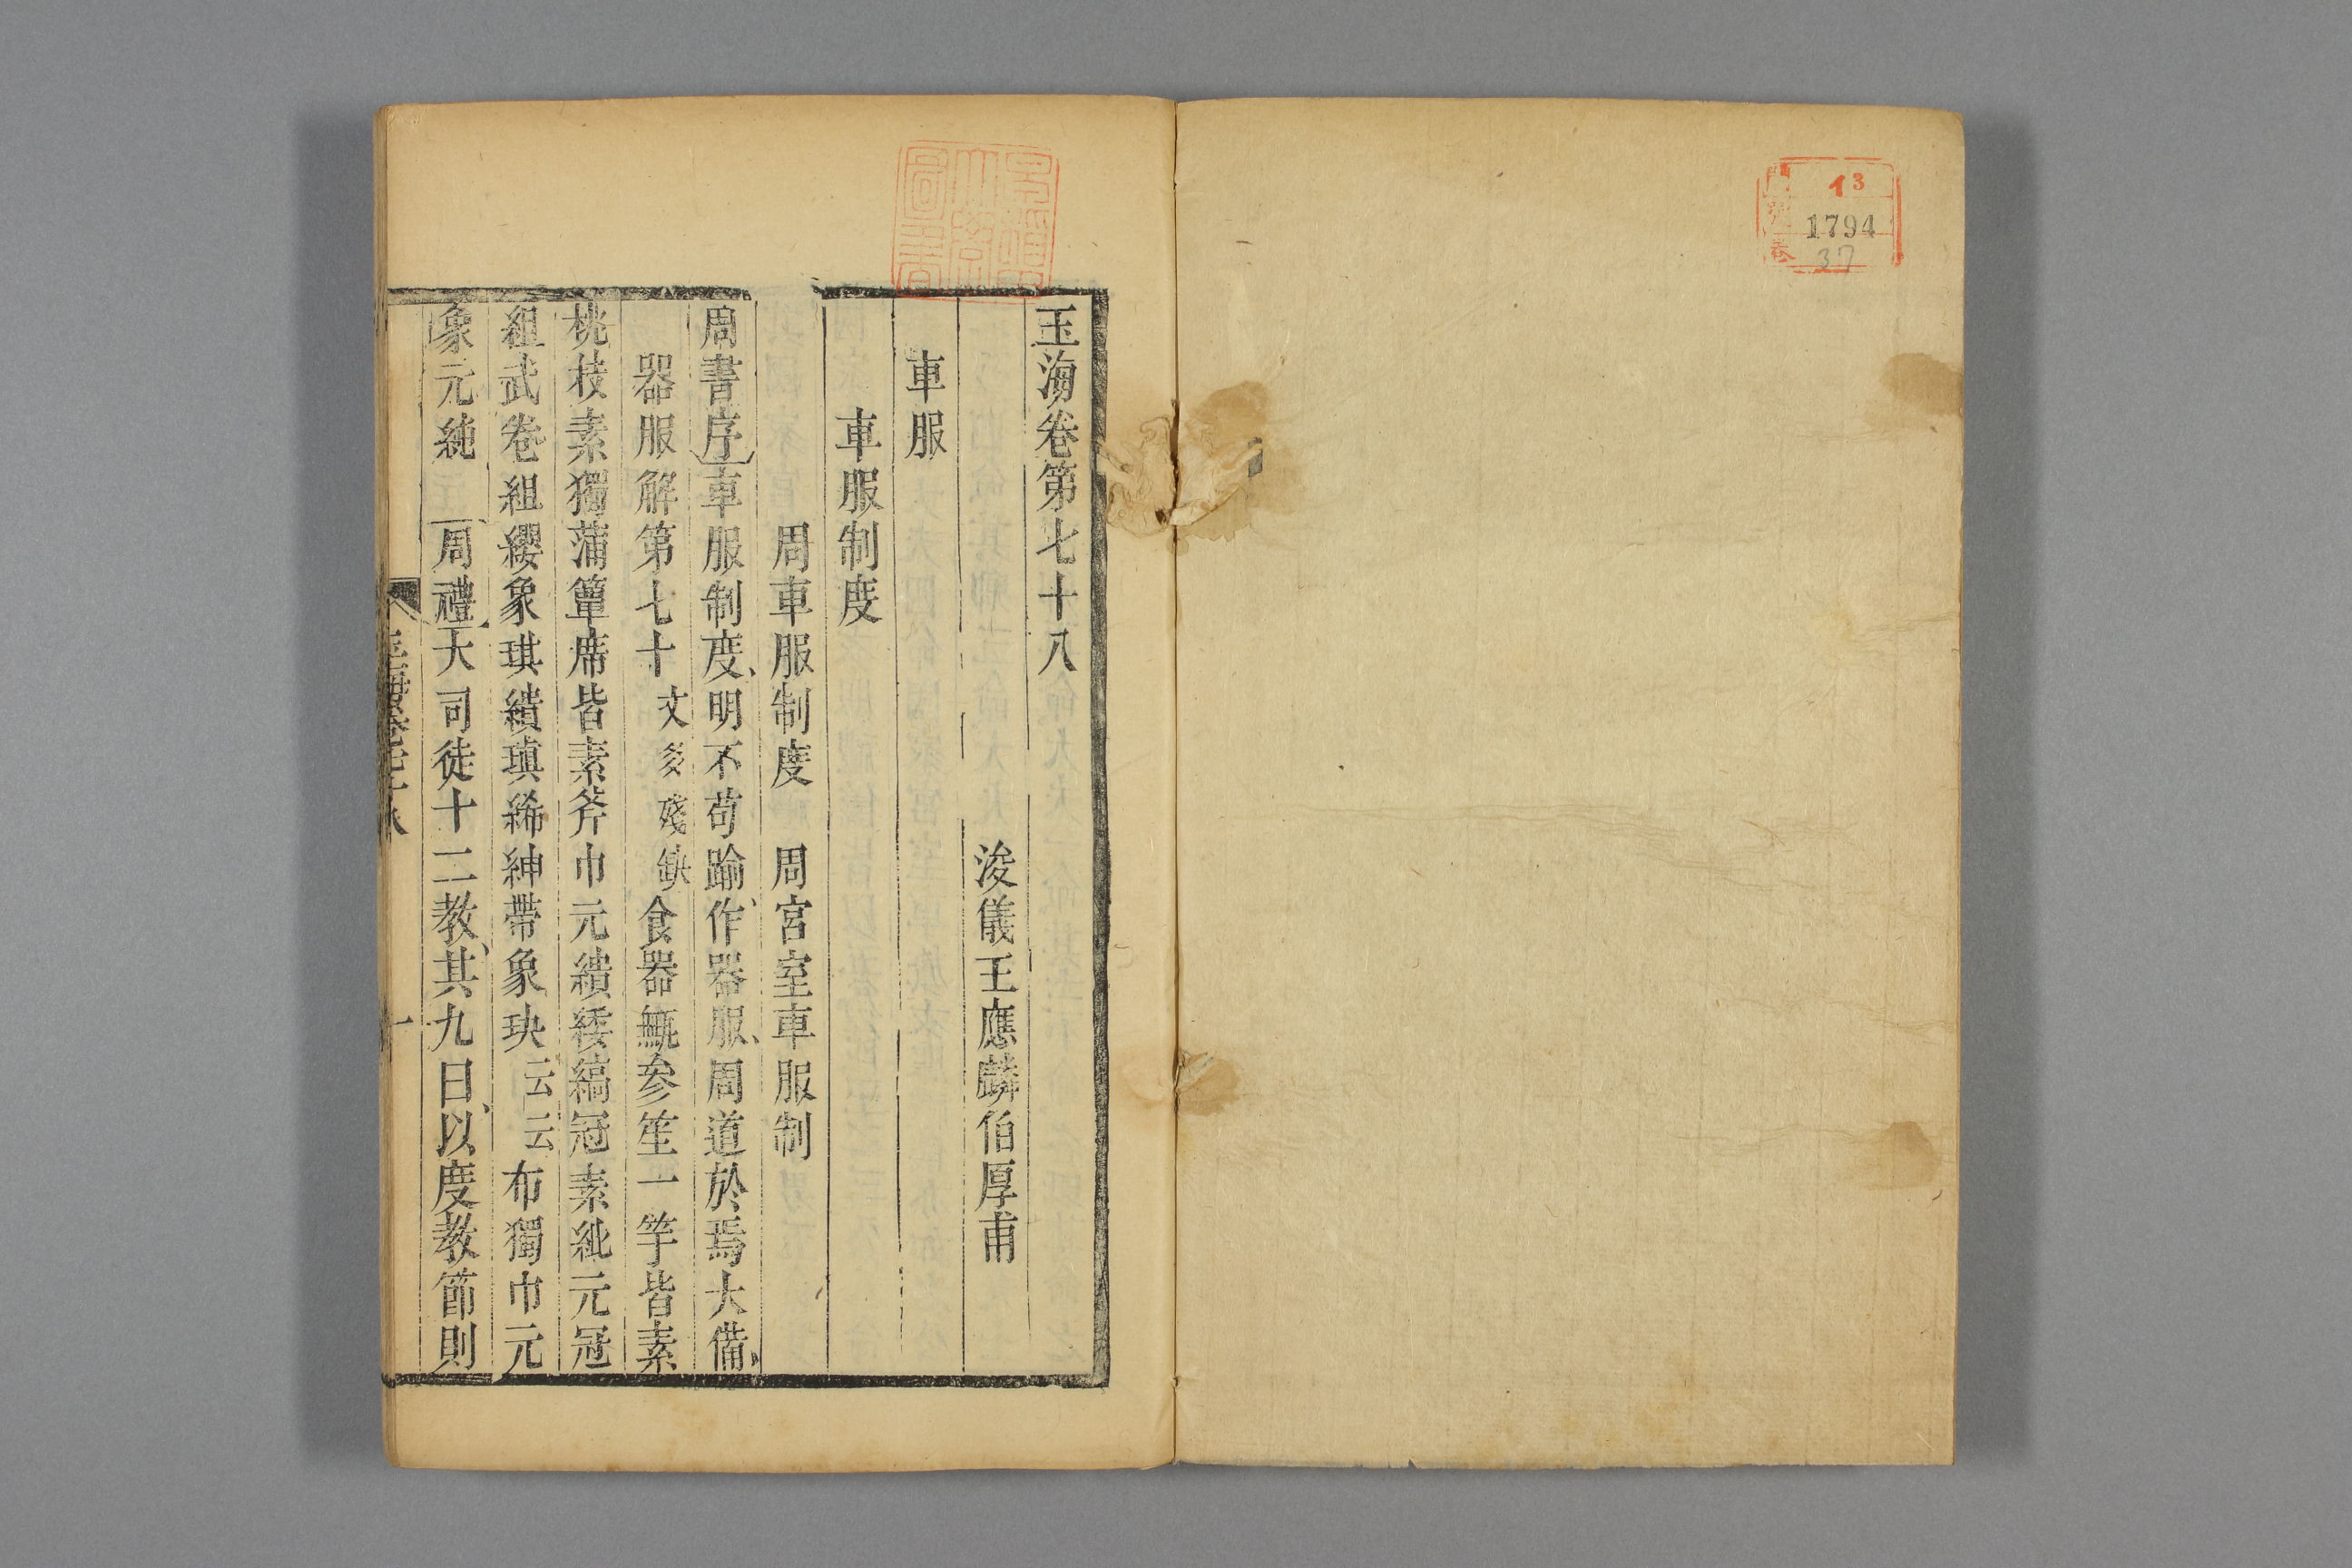 門 イ3
號 1794
卷 37
玉海卷第七十八
浚儀王應麟伯厚甫
車服
車服制度
周車服制度 周宮室車服制
周書序車服制度、明不苟踰、作器服、周道於焉大備、
器服解第七十文多殘缺食器甒參笙一竽皆素
桃枝素獨蒲簟席皆素斧巾元繢緌縞冠素紕元冠
組武卷組纓象琪繢瑱絺紳帶象玦云云布獨巾元
象元純 周禮大司徒十二教、其九曰、以度教節則
玉海卷七十八 一